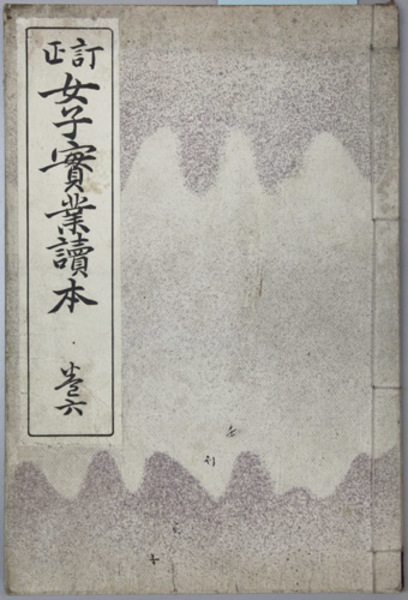 訂正
女子實業讀本
卷六